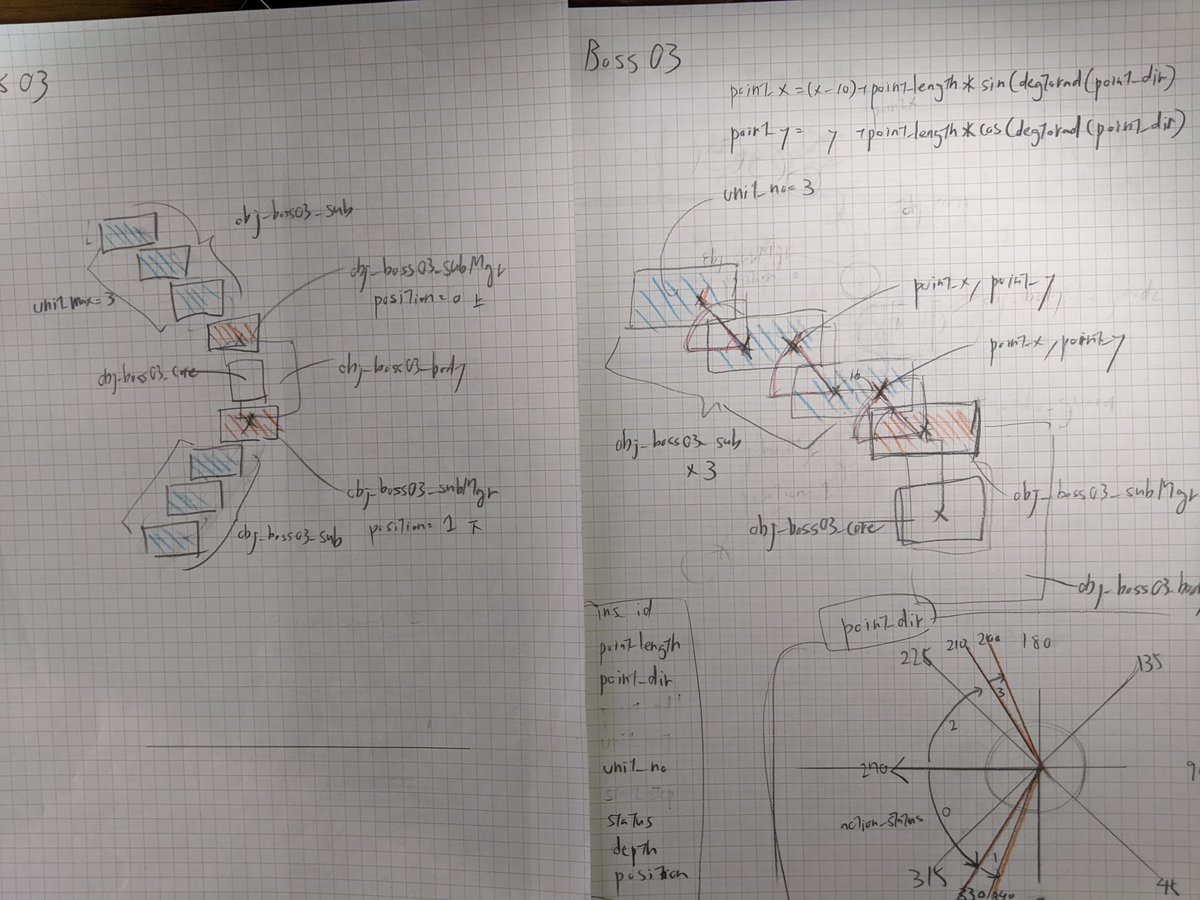 03
obj_boss03_sub
unit max=3
obj_boss03_subMgr
position=0 ±
obj-boss03.core
obj_boss03_body
obj_boss03_subMgr
position=1 ∓
obj_boss03_sub
Boss 03
point_x=(x-10)+point_length*sin(degtorad(point_dir)
point_y= y +point_length*cos(degtorad(point_dir)
unit_no=3
point_x, point_y
point_x, point_y
10
obj_boss03_sub
×3
obj_boss03_subMgr
obj_boss03_core
obj_boss03.bod
ins_id
point_length
point_dir
unit_no
status
depth
position
point_dir
225
210
200
180
135
3
2
270
0
action_status
1
315
330
340
45